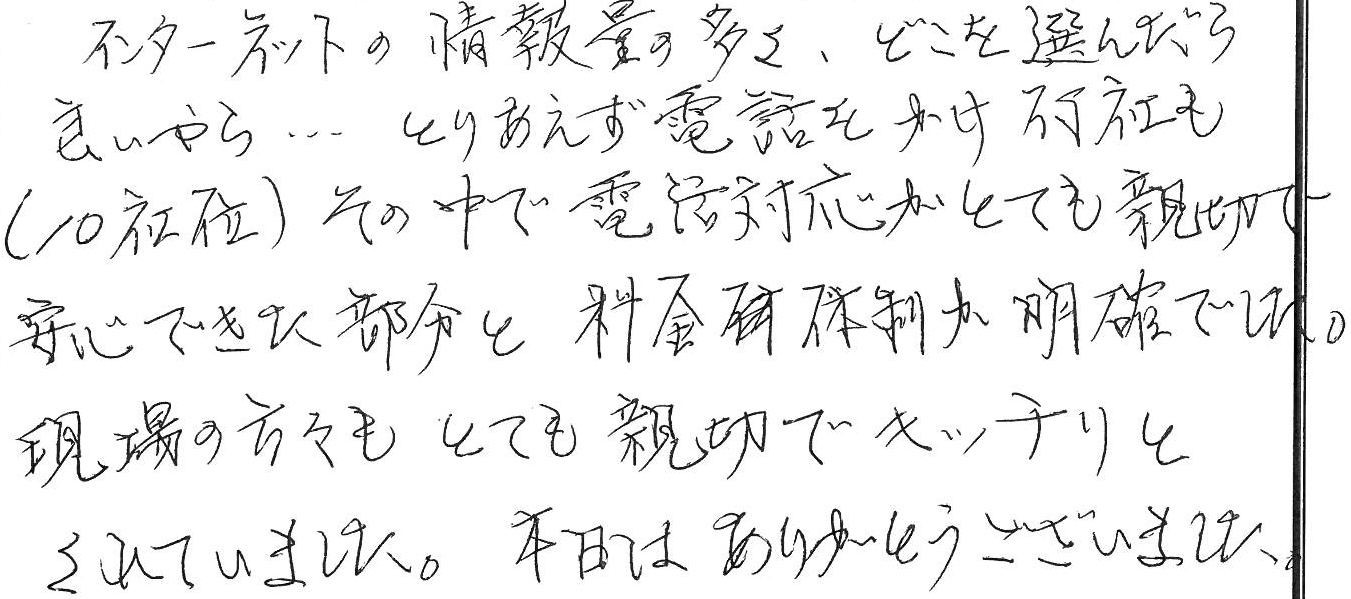 インターネットの情報量の多さ、どこを選んだら
良いやら… とりあえず電話をかけ 何社も
(10社位) その中で電話対応がとても親切で
安心できた部分と 料金体制が明確でした。
現場の方々も とても親切でキッチリと
されていました。 本日は ありがとうございました。